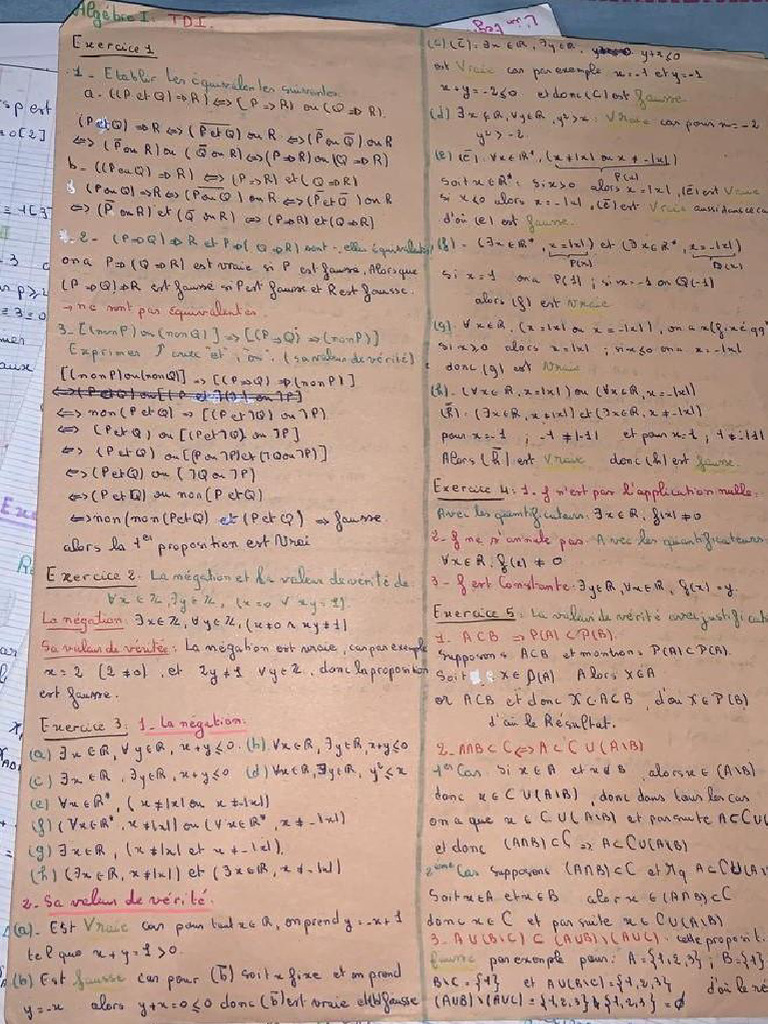 Algèbre I. TD I.
Exercice 1
1- Etablir les équivalentes suivantes
a. ((P et Q) ⇒ R) ⟺ (P ⇒ R) ou (Q ⇒ R).
(P et Q) ⇒ R ⟺ (\overline{P et Q}) ou R ⟺ (P̄ ou Q̄) ou R
⟺ (P̄ ou R) ou (Q̄ ou R) ⟺ (P ⇒ R) ou (Q ⇒ R)
b- ((P ou Q) ⇒ R) ⟺ (P ⇒ R) et (Q ⇒ R)
(P ou Q) ⇒ R ⟺ (\overline{P ou Q}) ou R ⟺ (P̄ et Q̄) ou R
⟺ (P̄ ou R) et (Q̄ ou R) ⟺ (P ⇒ R) et (Q ⇒ R)
2- (P ⇒ Q) ⇒ R et P ⇒ (Q ⇒ R) sont-elles équivalentes
on a P ⇒ (Q ⇒ R) est vraie si P est fausse, Alors que
(P ⇒ Q) ⇒ R est fausse si P est fausse et R est fausse.
→ ne sont pas équivalentes.
3- [(non P) ou (non Q)] ⇒ [(P ⇒ Q) ⇒ (non P)]
Exprimer P avec "et", "ou". (sa valeur de vérité)
[(non P) ou (non Q)] ⇒ [(P ⇒ Q) ⇒ (non P)]
⟺ non (P et Q) ⇒ [(P et ¬Q) ou ¬P]
⟺ (P et Q) ou [(P et ¬Q) ou ¬P]
⟺ (P et Q) ou [P ou ¬P) et (¬Q ou ¬P)]
⟺ (P et Q) ou (¬Q ou ¬P)
⟺ (P et Q) ou non (P et Q)
⟺ non (non (P et Q) et (P et Q) ⇒ fausse
alors la 1er proposition est Vrai
Exercice 2: La négation et la valeur de vérité de
∀x ∈ Z, ∃y ∈ Z, (x = 0 ∨ xy = 1).
La négation: ∃x ∈ Z, ∀y ∈ Z, (x ≠ 0 ∧ xy ≠ 1)
Sa valeur de vérité: La négation est vraie, car par exemple
x = 2 (2 ≠ 0), et 2y ≠ 1 ∀y ∈ Z, donc la proposition
est fausse.
Exercice 3: 1- La négation:
(a) ∃x ∈ R, ∀y ∈ R, x+y ≤ 0. (b) ∀x ∈ R, ∃y ∈ R, x+y ≤ 0
(c) ∃x ∈ R, ∃y ∈ R, x+y ≤ 0 (d) ∀x ∈ R, ∃y ∈ R, y² ≤ x
(e) ∀x ∈ R*, (x ≠ |x| ou x ≠ -|x|)
(f) (∀x ∈ R*, x ≠ |x|) ou (∀x ∈ R*, x ≠ -|x|)
(g) ∃x ∈ R, (x ≠ |x| et x ≠ -|x|).
(h) (∃x ∈ R, x ≠ |x|) et (∃x ∈ R, x ≠ -|x|)
2- Sa valeur de vérité.
(a). Est Vraie car pour tout x ∈ R, on prend y = -x+1
tel que x+y = 1 > 0.
(b) Est fausse car pour (b̄) soit x fixe et on prend
y = -x alors y+x = 0 ≤ 0 donc (b̄) est vraie et (b) fausse
(c) (c̄): ∃x ∈ R, ∃y ∈ R, y+x ≤ 0
est Vraie car par exemple x = -1 et y = -1
x+y = -2 ≤ 0 et donc (c) est fausse.
(d) ∃x ∈ R, ∀y ∈ R, y² > x: Vraie car pour x = -2
y² > -2.
(e) (ē): ∀x ∈ R*, (x ≠ |x| ou x ≠ -|x|)
P(x)
Soit x ∈ R*: si x > 0 alors x = |x|, (ē) est Vraie
si x < 0 alors x = -|x|, (ē) est Vraie aussi dans ce ca
d'où (e) est fausse.
(f)- (∃x ∈ R*, x = |x|) et (∃x ∈ R*, x = -|x|)
P(x) Q(x)
Si x = 1 on a P(1); si x = -1 on Q(-1)
alors (f) est vraie
(g): ∀x ∈ R, (x = |x| ou x = -|x|), on a x (fixé qq
si x > 0 alors x = |x|; si x ≤ 0 on a x = -|x|
donc (g) est Vraie
(h)- (∀x ∈ R, x = |x|) ou (∀x ∈ R, x = -|x|)
(h̄): (∃x ∈ R, x ≠ |x|) et (∃x ∈ R, x ≠ -|x|)
pour x = -1; -1 ≠ |-1| et pour x = 1, 1 ≠ -|1|
Alors (h̄) est Vraie donc (h) est fausse.
Exercice 4: 1. f n'est pas l'application nulle.
Avec les quantificateurs: ∃x ∈ R, f(x) ≠ 0
2- f ne s'annule pas. Avec les quantificateurs
∀x ∈ R, f(x) ≠ 0
3- f est Constante: ∃y ∈ R, ∀x ∈ R, f(x) = y.
Exercice 5: La valeur de vérité avec justificat
1. A ⊂ B ⇒ P(A) ⊂ P(B).
Supposons A ⊂ B et montrons P(A) ⊂ P(B).
Soit X ∈ P(A) Alors X ⊂ A
or A ⊂ B et donc X ⊂ A ⊂ B, d'où X ∈ P(B)
d'où le Résultat.
2- A∩B ⊂ C ⟺ A ⊂ C ∪ (A\B)
1er Cas Si x ∈ A et x ∉ B, alors x ∈ (A\B)
donc x ∈ C ∪ (A\B), donc dans tous les cas
on a que x ∈ C ∪ (A\B) et par suite A ⊂ C ∪ (
et donc (A∩B) ⊂ C ⇒ A ⊂ C ∪ (A\B)
2ème Cas Supposons (A∩B) ⊂ C et Mq A ⊂ C ∪ (A\
Soit x ∈ A et x ∈ B alors x ∈ (A∩B) ⊂ C
donc x ∈ C et par suite x ∈ C ∪ (A\B)
3- A ∪ (B\C) ⊂ (A∪B)\(A∪C). cette proposit.
fausse par exemple pour: A = {1,2,3}; B = {4}.
B\C = {4} et A ∪ (B\C) = {1,2,3} d'où le ré
(A∪B)\(A∪C) = {1,2,3}\{1,2,3} = ∅